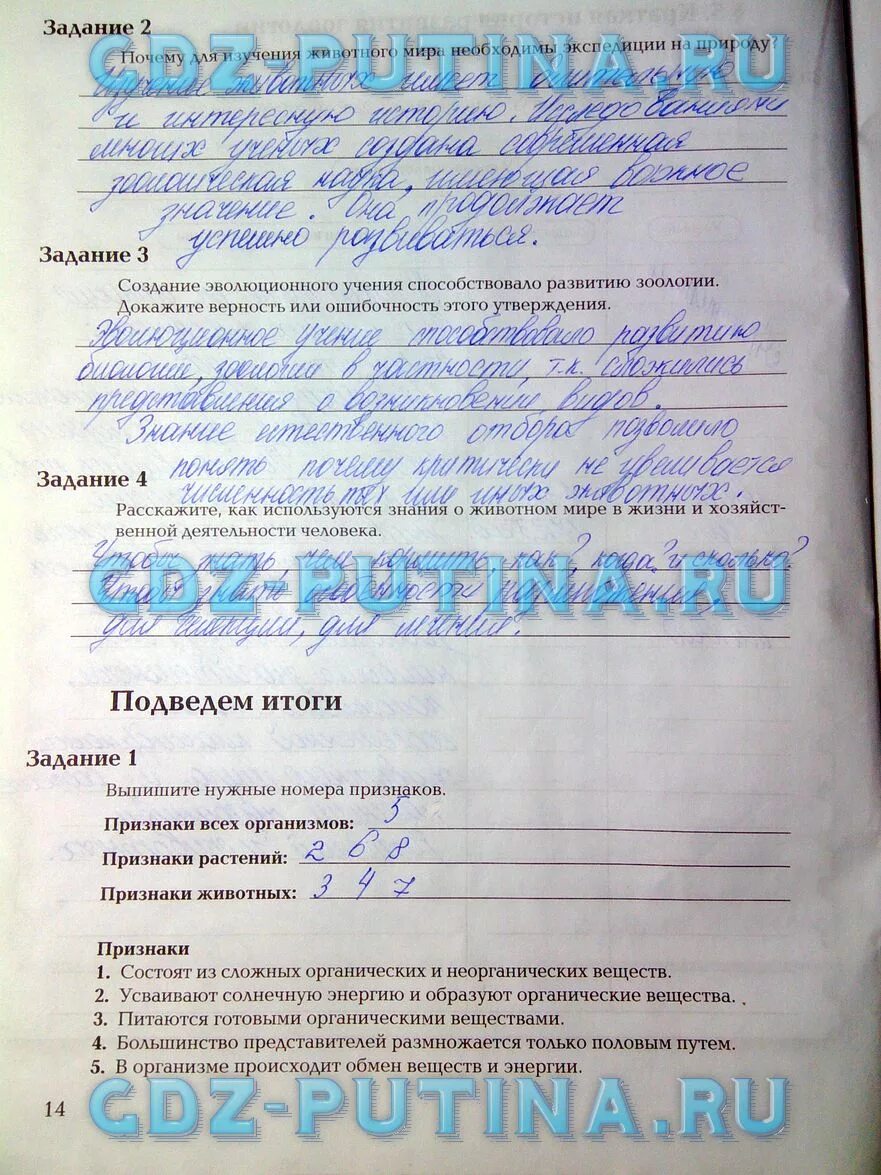 Задание 2
Почему для изучения животного мира необходимы экспедиции на природу?
GDZ-PUTINA.RU
Изучение животных имеет длительную
и интересную историю. Исследованиями
многих учёных создана современная
зоологическая наука, имеющая важное
значение. Она продолжает
успешно развиваться.
Задание 3
Создание эволюционного учения способствовало развитию зоологии.
Докажите верность или ошибочность этого утверждения.
Эволюционное учение способствовало развитию
биологии, зоологии в частности, т.к. сложились
представления о возникновении видов.
Знание естественного отбора позволило
понять почему критически не увеличивается
численность тех или иных животных.
Задание 4
Расскажите, как используются знания о животном мире в жизни и хозяйст-
венной деятельности человека.
Чтобы знать, чем кормить, как?, когда? и сколько?
GDZ-PUTINA.RU
Чтобы знать особенности размножения,
для селекции, для лечения.
Подведем итоги
Задание 1
Выпишите нужные номера признаков.
Признаки всех организмов: 5
Признаки растений: 2 6 8
Признаки животных: 3 4 7
Признаки
1. Состоят из сложных органических и неорганических веществ.
2. Усваивают солнечную энергию и образуют органические вещества.
3. Питаются готовыми органическими веществами.
4. Большинство представителей размножается только половым путем.
5. В организме происходит обмен веществ и энергии.
14
GDZ-PUTINA.RU